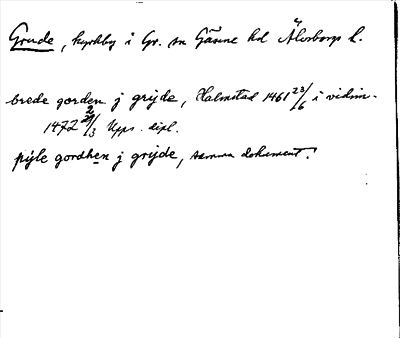 Grude, kyrkby i Gr. sn Gäsene hd Älvsborgs l.
brede gorden j grijde, Halmstad 1461 23/6 i vidim.
1472 2/3 Upps. dipl.
pijle gordhen j grijde, samma dokument.